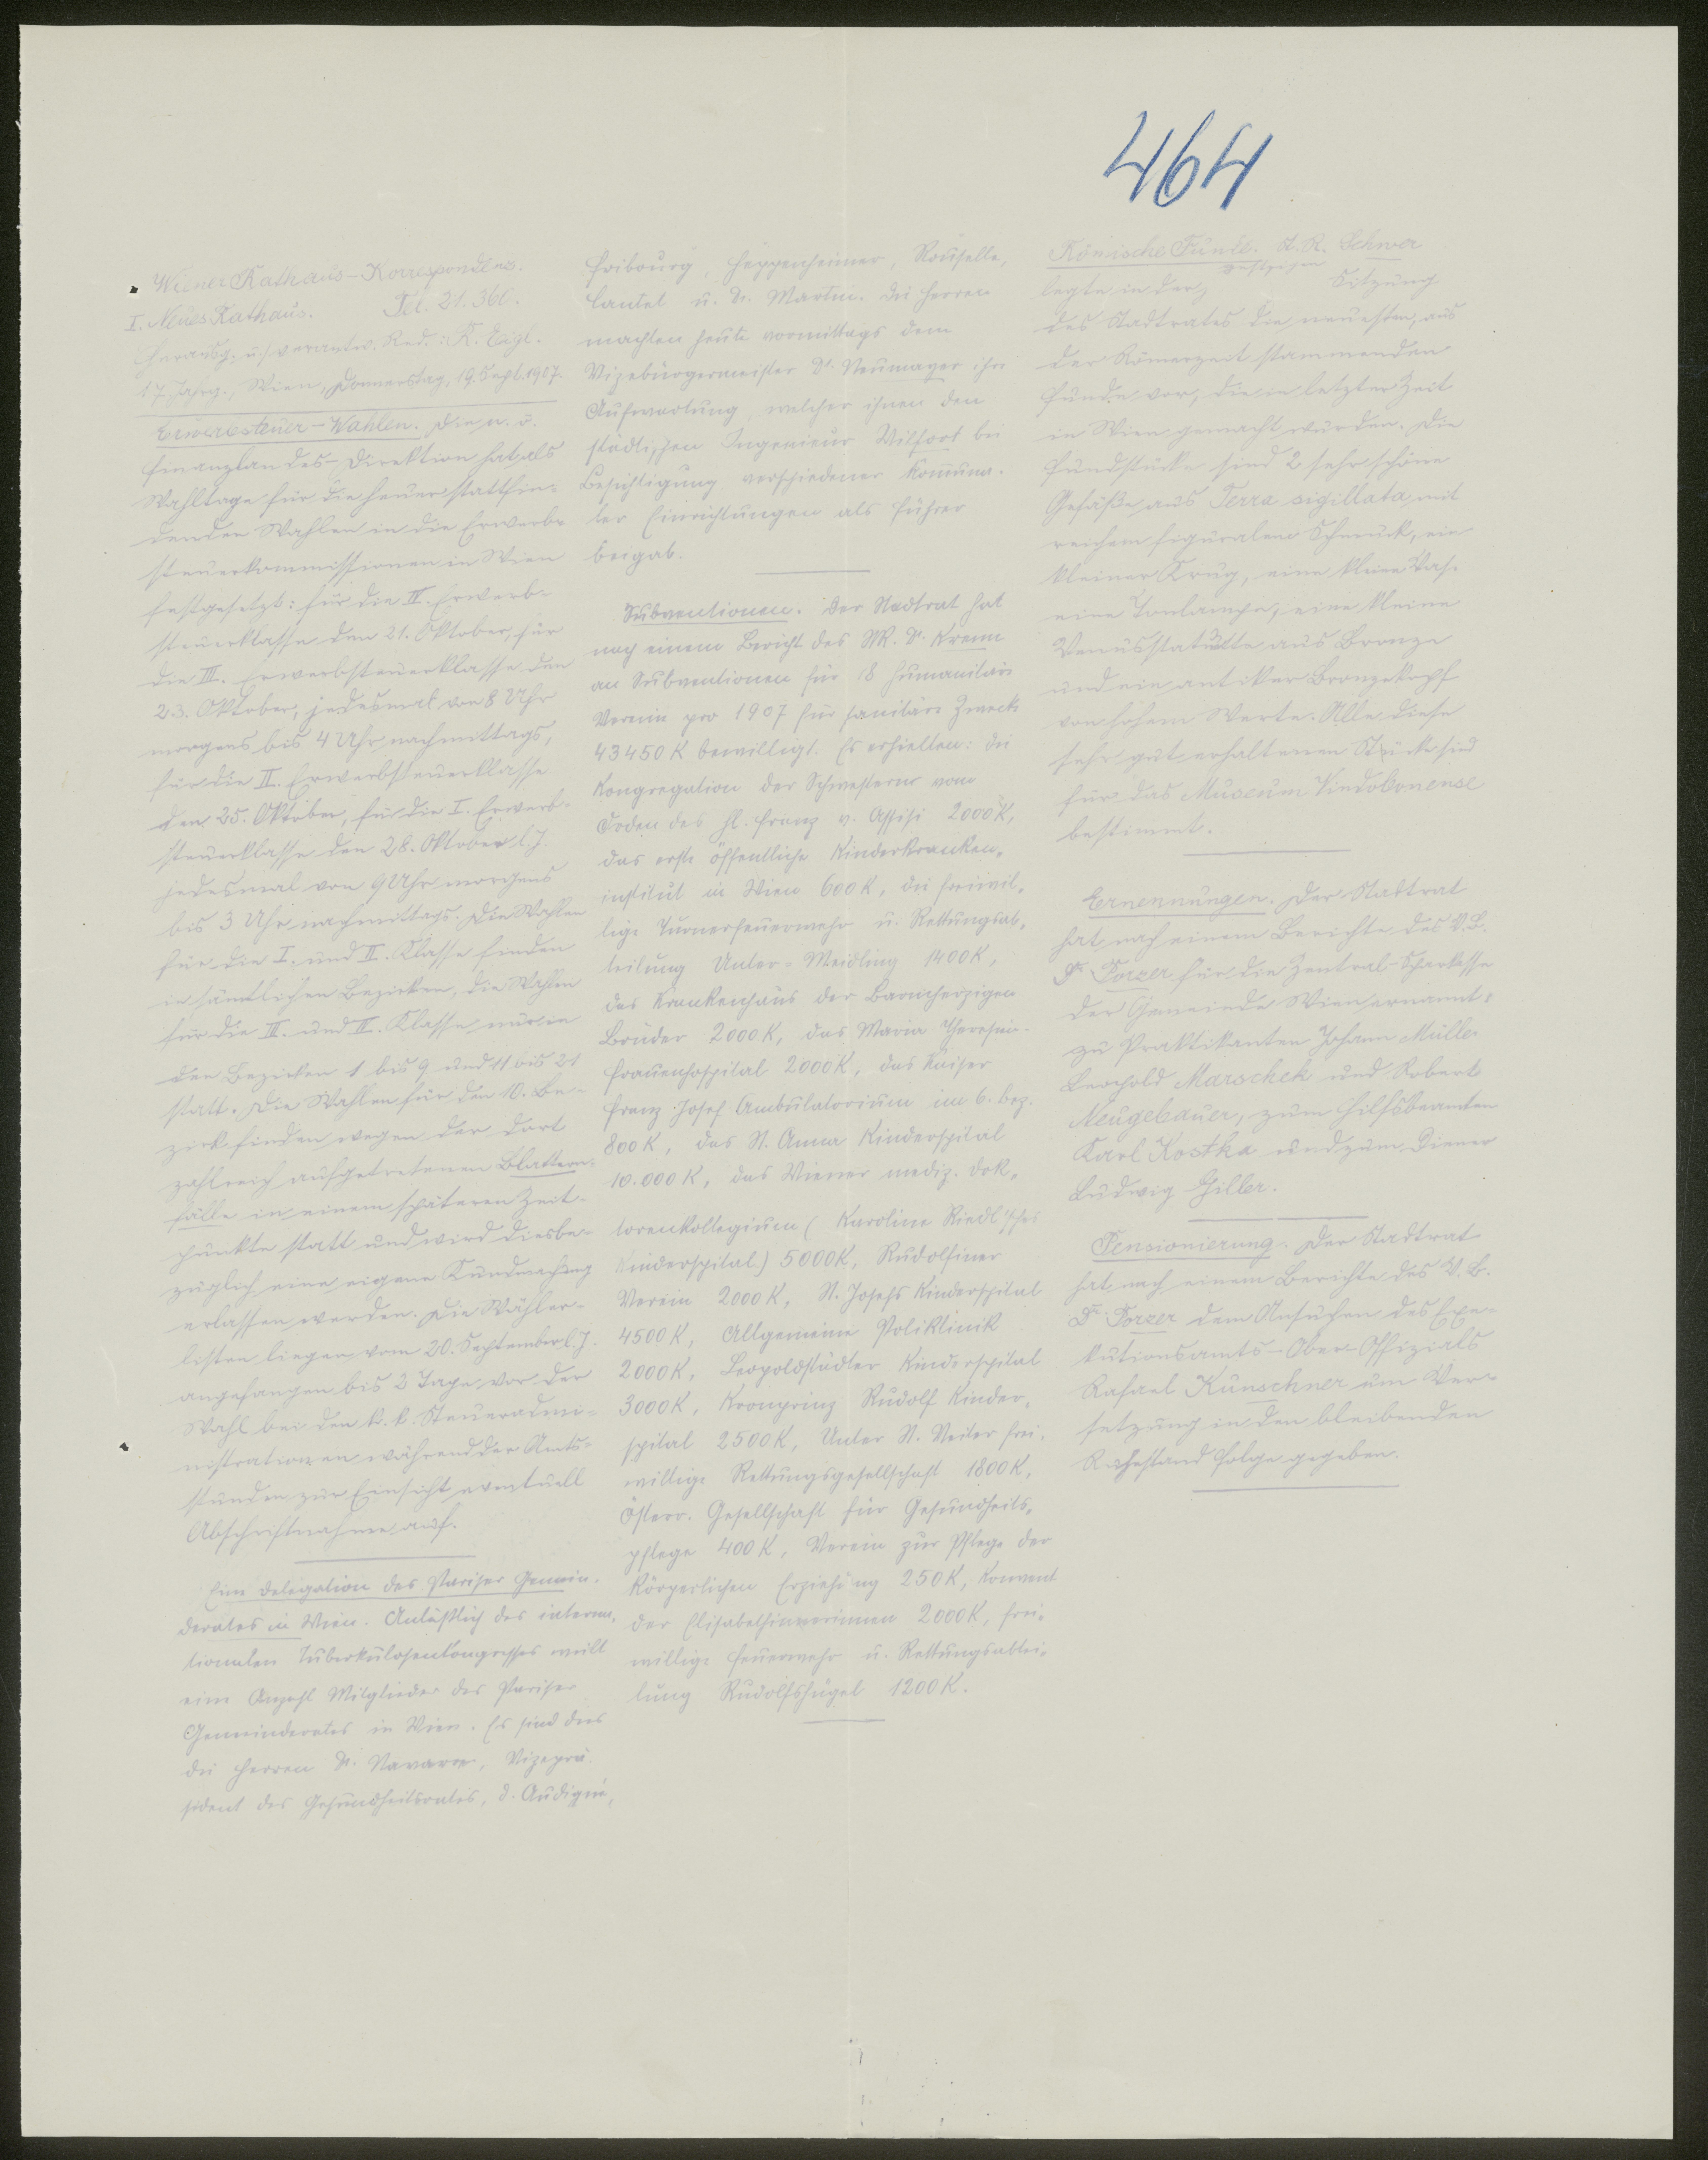 464
Wiener Rathaus-Korrespondenz.
I. Neues Rathaus. Tel. 21.360.
Herausg. u. verantw. Red.: R. Eigl.
17. Jahrg., Wien, Donnerstag, 19. Sept. 1907.
Erwerbsteuer-Wahlen. Die n. ö.
Finanzlandes-Direktion hat als
Wahltage für die heuer stattfin-
denden Wahlen in die Erwerb-
steuerkommissionen in Wien
festgesetzt: für die IV. Erwerb-
steuerklasse den 21. Oktober, für
die III. Erwerbsteuerklasse den
23. Oktober, jedesmal von 8 Uhr
morgens bis 4 Uhr nachmittags,
für die II. Erwerbsteuerklasse
den 25. Oktober, für die I. Erwerb-
steuerklasse den 28. Oktober l. J.
jedesmal von 9 Uhr morgens
bis 3 Uhr nachmittags. Die Wahlen
für die I. und II. Klasse finden
in sämtlichen Bezirken, die Wahlen
für die III. und IV. Klasse nur in
den Bezirken 1 bis 9 und 11 bis 21
statt. Die Wahlen für den 10. Be-
zirk finden wegen der dort
zahlreich aufgetretenen Blattern-
fälle in einem späteren Zeit-
punkte statt und wird diesbe-
züglich eine eigene Kundmachung
erlassen werden. Die Wähler-
listen liegen vom 20. September l. J.
angefangen bis 2 Tage vor der
Wahl bei den k. k. Steueradmi-
nistrationen während der Amts-
stunden zur Einsicht eventuell
Abschriftnahme auf.
Eine Delegation des Pariser Gemein-
derates in Wien. Anläßlich des interna-
tionalen Tuberkulosenkongresses weilt
eine Anzahl Mitglieder des Pariser
Gemeinderates in Wien. Es sind dies
die Herren Dr. Navarre, Vizeprä-
sident des Gesundheitsrates, d.
Fribourg, Heppenheimer, Rouselle,
Lautel u. Dr. Martin. Die Herren
machten heute vormittags dem
Vizebürgermeister Dr. Neumayer ihre
Aufwartung, welcher ihnen den
städtischen Ingenieur Wilfort bei
Besichtigung verschiedener kommuna-
ler Einrichtungen als Führer
beigab.
Subventionen. Der Stadtrat hat
nach einem Bericht des StR. Dr. Krenn
an Subventionen für 18 humanitäre
Vereine pro 1907 für sanitäre Zwecke
43450 K bewilligt. Es erhielten: die
Kongregation der Schwestern vom
Orden des hl. Franz v. Assisi 2000 K,
das erste öffentliche Kinderkranken-
institut in Wien 600 K, die freiwil-
lige Turnerfeuerwehr u. Rettungsab-
teilung Unter-Meidling 1400 K,
das Krankenhaus der Barmherzigen
Brüder 2000 K, das Maria Theresia-
Frauenhospital 2000 K, das Kaiser
Franz Josef Ambulatorium im 6. Bez.
800 K, das St. Anna Kinderspital
10.000 K, das Wiener mediz. Dok-
torenkollegium (Karoline Riedl'sches
Kinderspital) 5000 K, Rudolfiner
Verein 2000 K, St. Josefs Kinderspital
4500 K, Allgemeine Poliklinik
2000 K, Leopoldstädter Kinderspital
3000 K, Kronprinz Rudolf Kinder-
spital 2500 K, Unter St. Veiter frei-
willige Rettungsgesellschaft 1800 K,
Österr. Gesellschaft für Gesundheits-
pflege 400 K, Verein zur Pflege der
körperlichen Erziehung 250 K, Konvent
der Elisabethinerinnen 2000 K, frei-
willige Feuerwehr u. Rettungsabtei-
lung Rudolfshügel 1200 K.
Römische Funde. St. R. Schwer
legte in der gestrigen Sitzung
des Stadtrates die neuesten, aus
der Römerzeit stammenden
Funde vor, die in letzter Zeit
in Wien gemacht wurden. Die
Fundstücke sind 2 sehr schöne
Gefäße aus Terra sigillata mit
reichem figuralem Schmuck, ein
kleiner Krug, eine kleine Vase
eine Tonlampe, eine kleine
Venusstatuette aus Bronze
und ein antiker Bronzekopf
von hohem Werte. Alle diese
sehr gut erhaltenen Stücke sind
für das Museum Vindobonense
bestimmt.
Ernennungen. Der Stadtrat
hat nach einem Berichte des V. B.
Dr. Porzer für die Zentral-Sparkasse
der Gemeinde Wien ernannt:
zu Praktikanten Johann Müller
Leopold Marschek und Robert
Neugebauer, zum Hilfsbeamten
Karl Kostka und zum Diener
Ludwig Giller.
Pensionierung. Der Stadtrat
hat nach einem Berichte des V. B.
Dr. Porzer dem Ansuchen des Exe-
kutionsamts-Ober-Offizials
Rafael Kunschner um Ver-
setzung in den bleibenden
Ruhestand Folge gegeben.